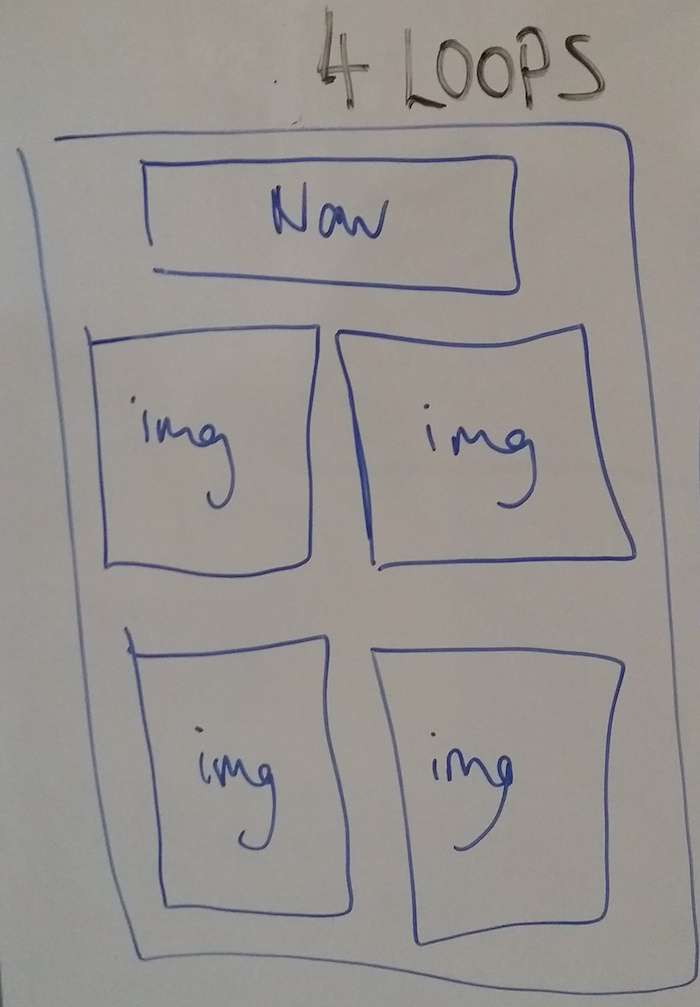 4 LOOPS
Now
img
img
img
img